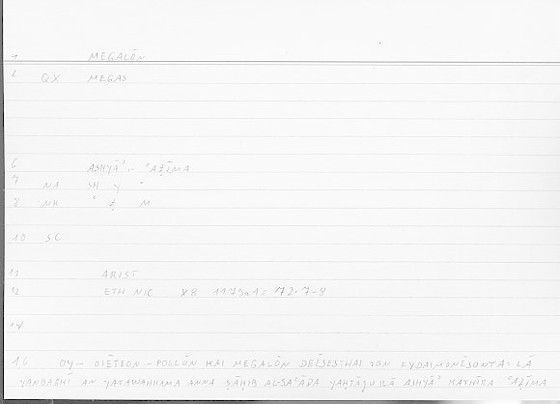 1 MEGALŌN
2 QX MEGAS
6 ASHYĀʾ ʿAẒĪMA
7 NA SH Y ʾ
8 NK ʿ Ẓ M
10 SC
11 ARIST
12 ETH. NIC X8 1179a1 = 73.7-8
14
16 OY - OIĒTEON - POLLŌN KAI MEGALŌN DEĒSESTHAI TON EYDAIMONĒSONTA: LĀ
YANBAGHĪ AN YATAWAHHAMA ANNA ṢĀḤIB AL-SAʿĀDA YAḤTĀǦU ILĀ ASHYĀʾ KATHĪRA ʿAẒĪMA